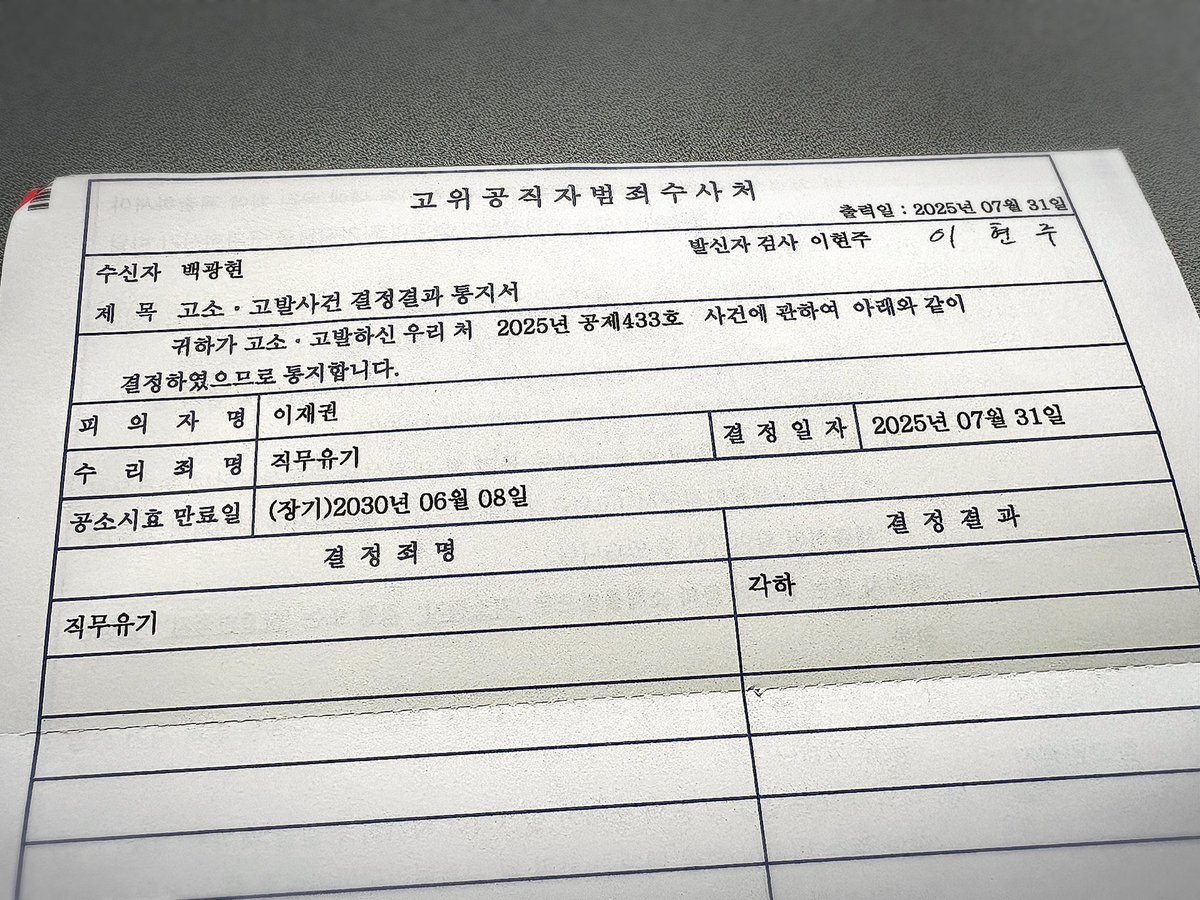 고위공직자범죄수사처
출력일 : 2025년 07월 31일
수신자 백광현
발신자 검사 이현주 이 현 주
제 목 고소·고발사건 결정결과 통지서
귀하가 고소·고발하신 우리 처 2025년 공제433호 사건에 관하여 아래와 같이
결정하였으므로 통지합니다.
피 의 자 명 이재권
수 리 죄 명 직무유기 결 정 일 자 2025년 07월 31일
공소시효 만료일 (장기)2030년 06월 08일
결 정 죄 명 결 정 결 과
직무유기 각하